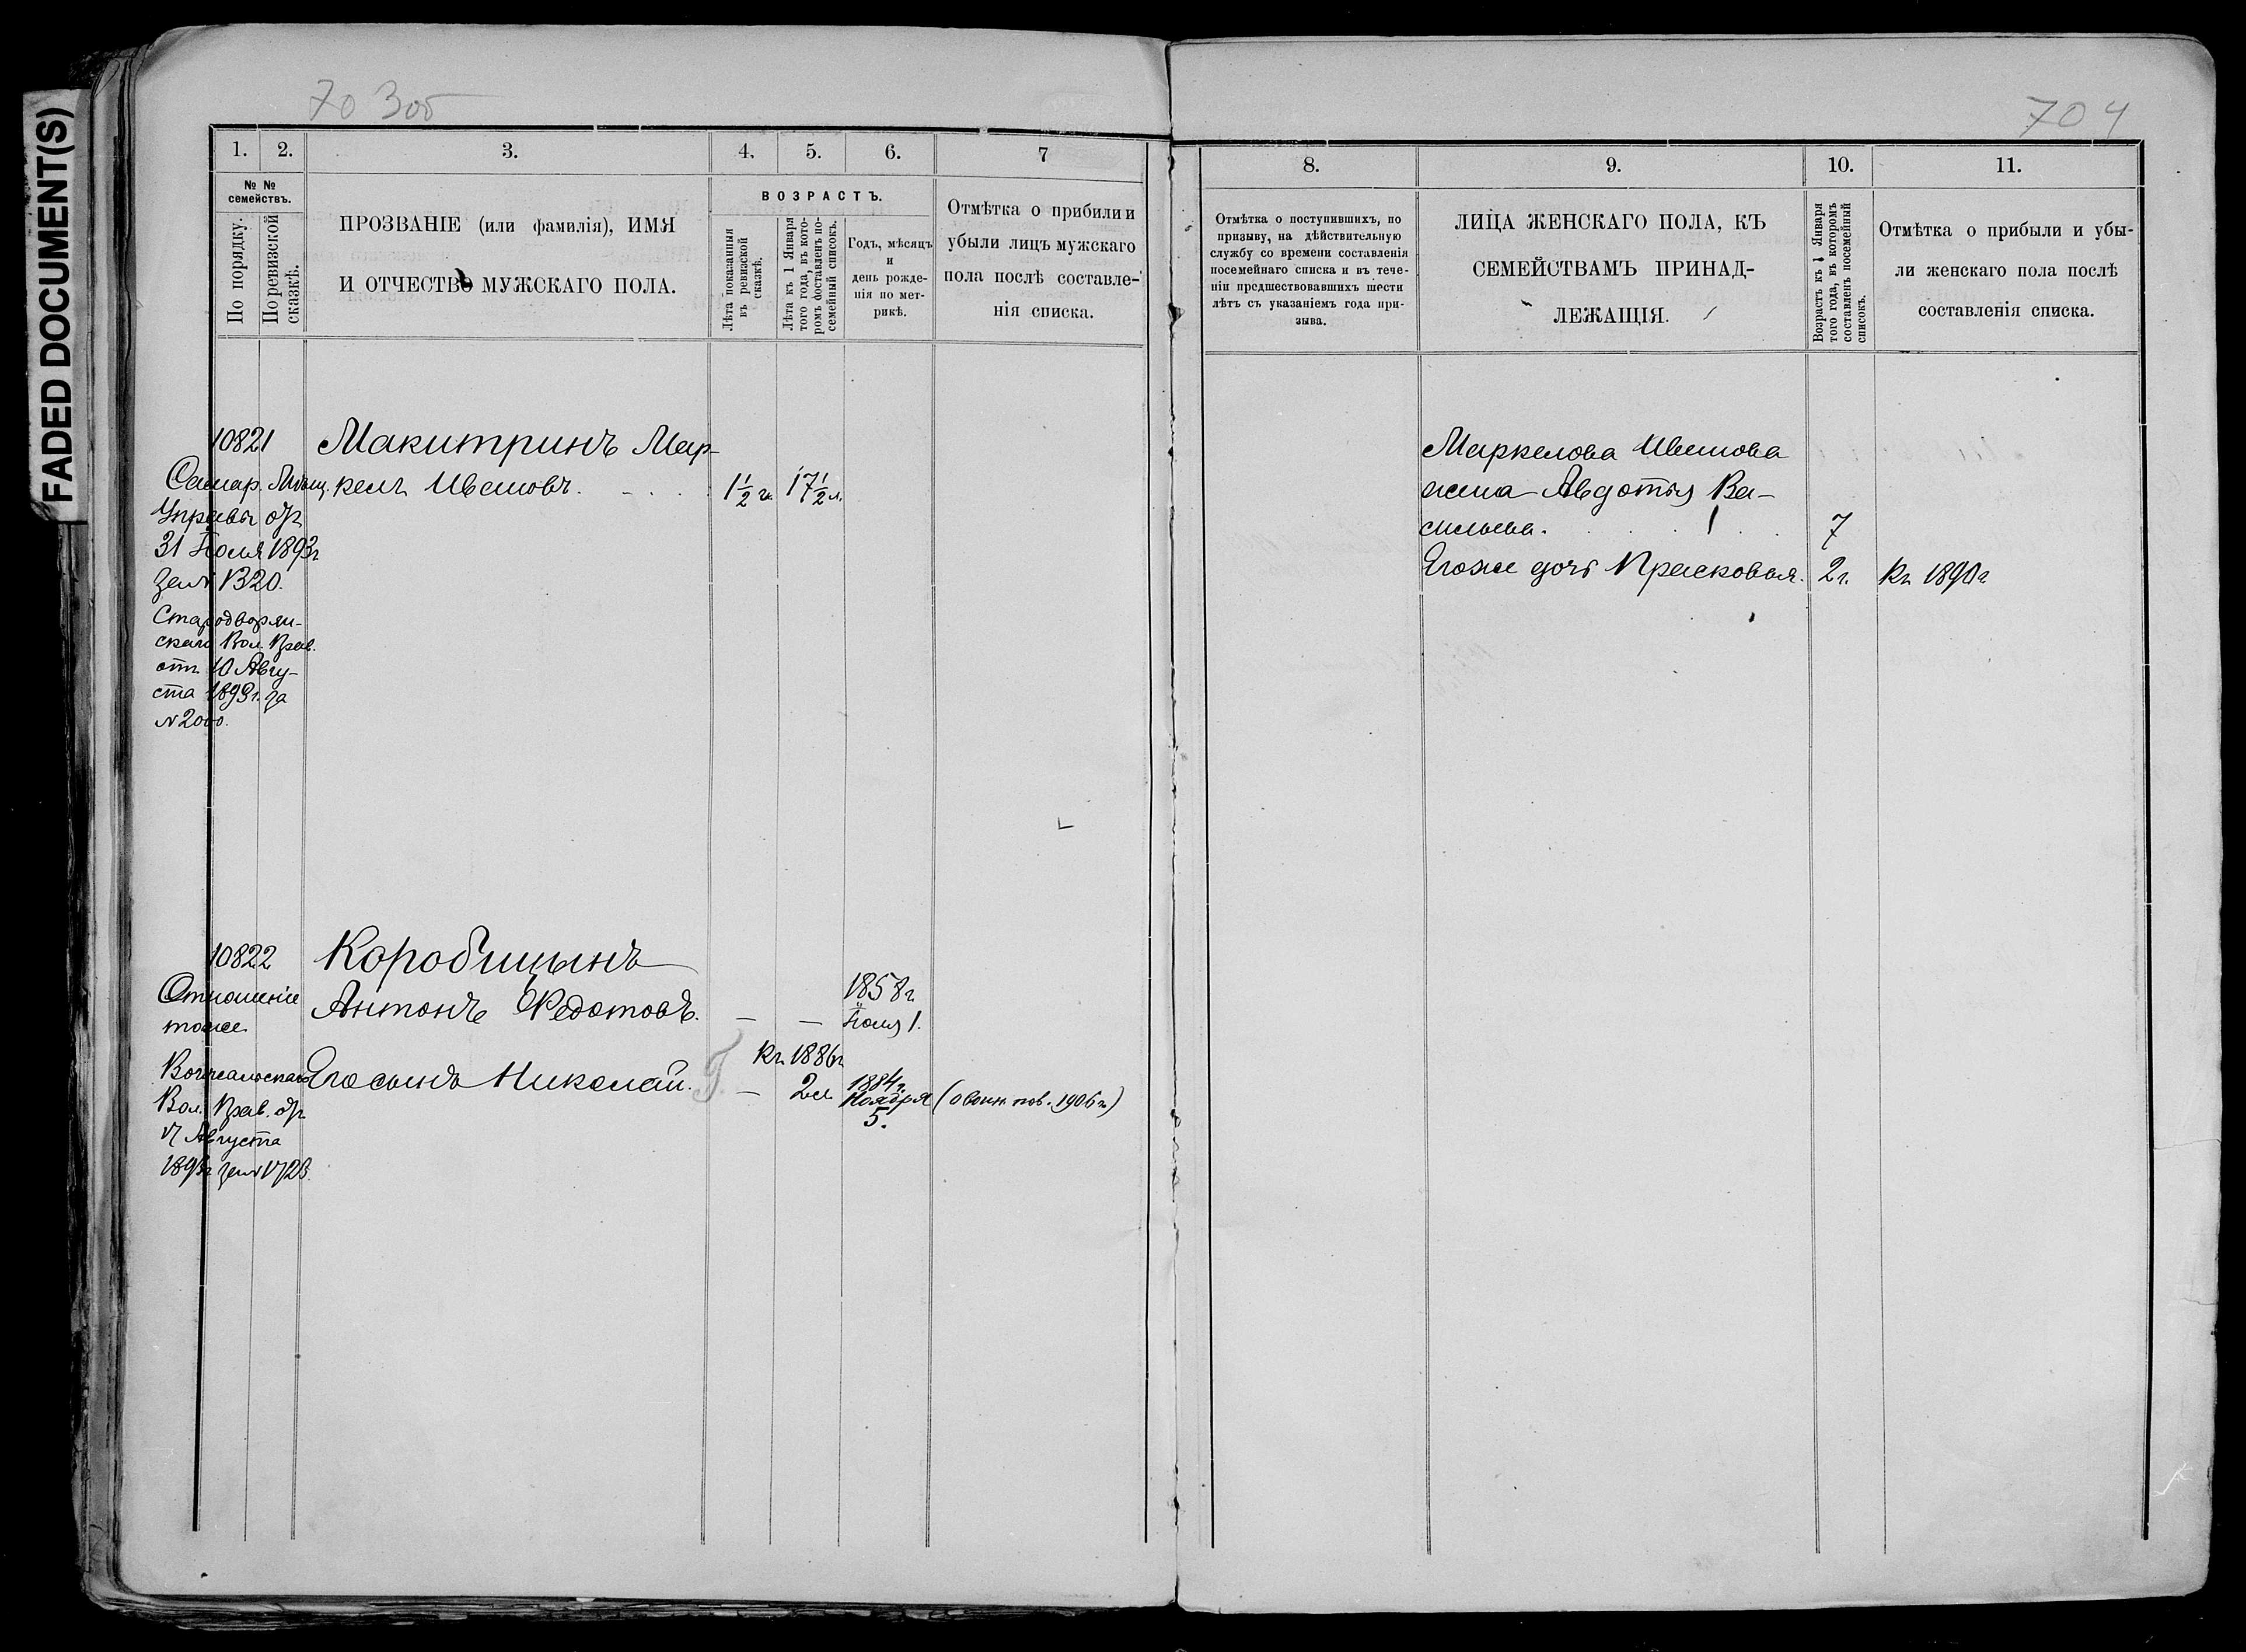 FADED DOCUMENT(S)
703об
1. 2. 3. 4. 5. 6. 7
№ № семействъ.
По порядку.
По ревизской сказкѣ.
ПРОЗВАНІЕ (или фамилія), ИМЯ
И ОТЧЕСТВО МУЖСКАГО ПОЛА.
ВОЗРАСТЪ.
Лѣта показанныя въ ревизской сказкѣ.
Лѣта къ 1 Января того года, въ которомъ составленъ посемейный списокъ.
Годъ, мѣсяцъ
и
день рожде-
нія по мет-
рикѣ.
Отмѣтка о прибыли и
убыли лицъ мужскаго
пола послѣ составле-
нія списка.
10821 Макитринъ Мар-
келъ Ивановъ. 1½ г. 17½ л.
Самар. Мѣщ.
Управы от
31 Іюля 1893 г
за №
Стародворян-
скаго Вол. Прав.
отъ 10 Авгу-
ста 1893 г. за
№ 2000.
10822 Коробицынъ
Антонъ Федотовъ. — — 1858 г. Іюля 1.
Отношеніе
тоже
Къ 1886 г
Его сынъ Николай. — 2 л. 1884 г. Ноября 5. (о воин. пов. 1906 г.)
Вол. Прав. от
17 Августа
1893 г за № 1723.
704
8. 9. 10. 11.
Отмѣтка о поступившихъ, по
призыву, на дѣйствительную
службу со времени составленія
посемейнаго списка и въ тече-
ніи предшествовавшихъ шести
лѣтъ съ указаніемъ года при-
зыва.
ЛИЦА ЖЕНСКАГО ПОЛА, КЪ
СЕМЕЙСТВАМЪ ПРИНАД-
ЛЕЖАЩІЯ.
Возрастъ къ 1 Января того года, въ которомъ составленъ посемейный списокъ.
Отмѣтка о прибыли и убы-
ли женскаго пола послѣ
составленія списка.
Маркелова Иванова
жена Авдотья Ва-
сильева. 7
Егоже дочь Прасковья. 2 г. Къ 1890 г